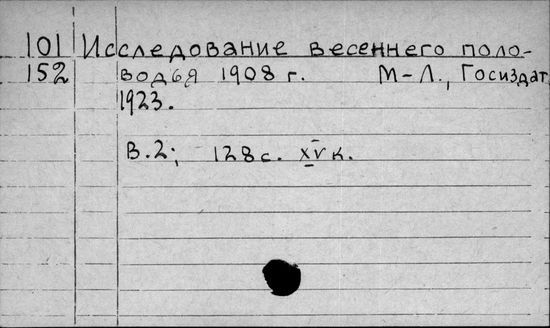 101 Исследование весеннего поло-
152 водья 1908 г. М-Л., Госиздат,
1923.
В.2; 128 с. XV к.